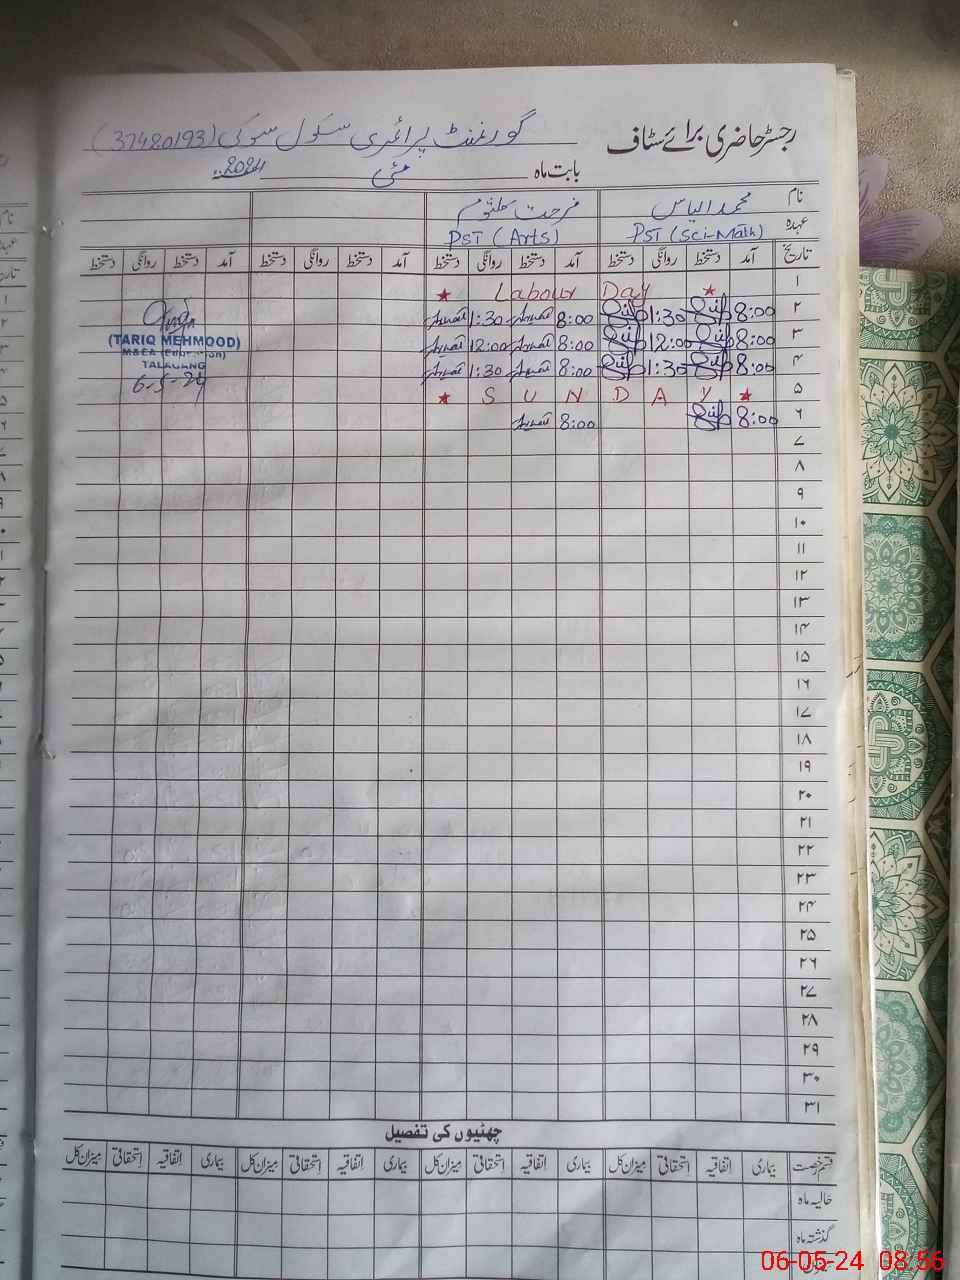 رجسٹر حاضری برائے سٹاف گورنمنٹ پرائمری سکول سوکی (37480193)
بابت ماہ مئی 2024
نام محمد الیاس فرحت کلثوم
عہدہ PST (Sci-Math) PST (Arts)
تاریخ آمد دستخط روانگی دستخط آمد دستخط روانگی دستخط آمد دستخط روانگی دستخط آمد دستخط روانگی دستخط
۱ ★ Labour Day ★
۲ 8:00 1:30 8:00 1:30
۳ 8:00 12:00 8:00 12:00
۴ 8:00 1:30 8:00 1:30
۵ ★ S U N D A Y ★
۶ 8:00 8:00
(TARIQ MEHMOOD)
M&EA (Education)
TALAGANG
6-5-24
۷
۸
۹
۱۰
۱۱
۱۲
۱۳
۱۴
۱۵
۱۶
۱۷
۱۸
۱۹
۲۰
۲۱
۲۲
۲۳
۲۴
۲۵
۲۶
۲۷
۲۸
۲۹
۳۰
۳۱
چھٹیوں کی تفصیل
قسم رخصت بیماری اتفاقیہ استحقاقی میزان کل بیماری اتفاقیہ استحقاقی میزان کل بیماری اتفاقیہ استحقاقی میزان کل بیماری اتفاقیہ استحقاقی میزان کل
حالیہ ماہ
گذشتہ ماہ
06-05-24 08:56